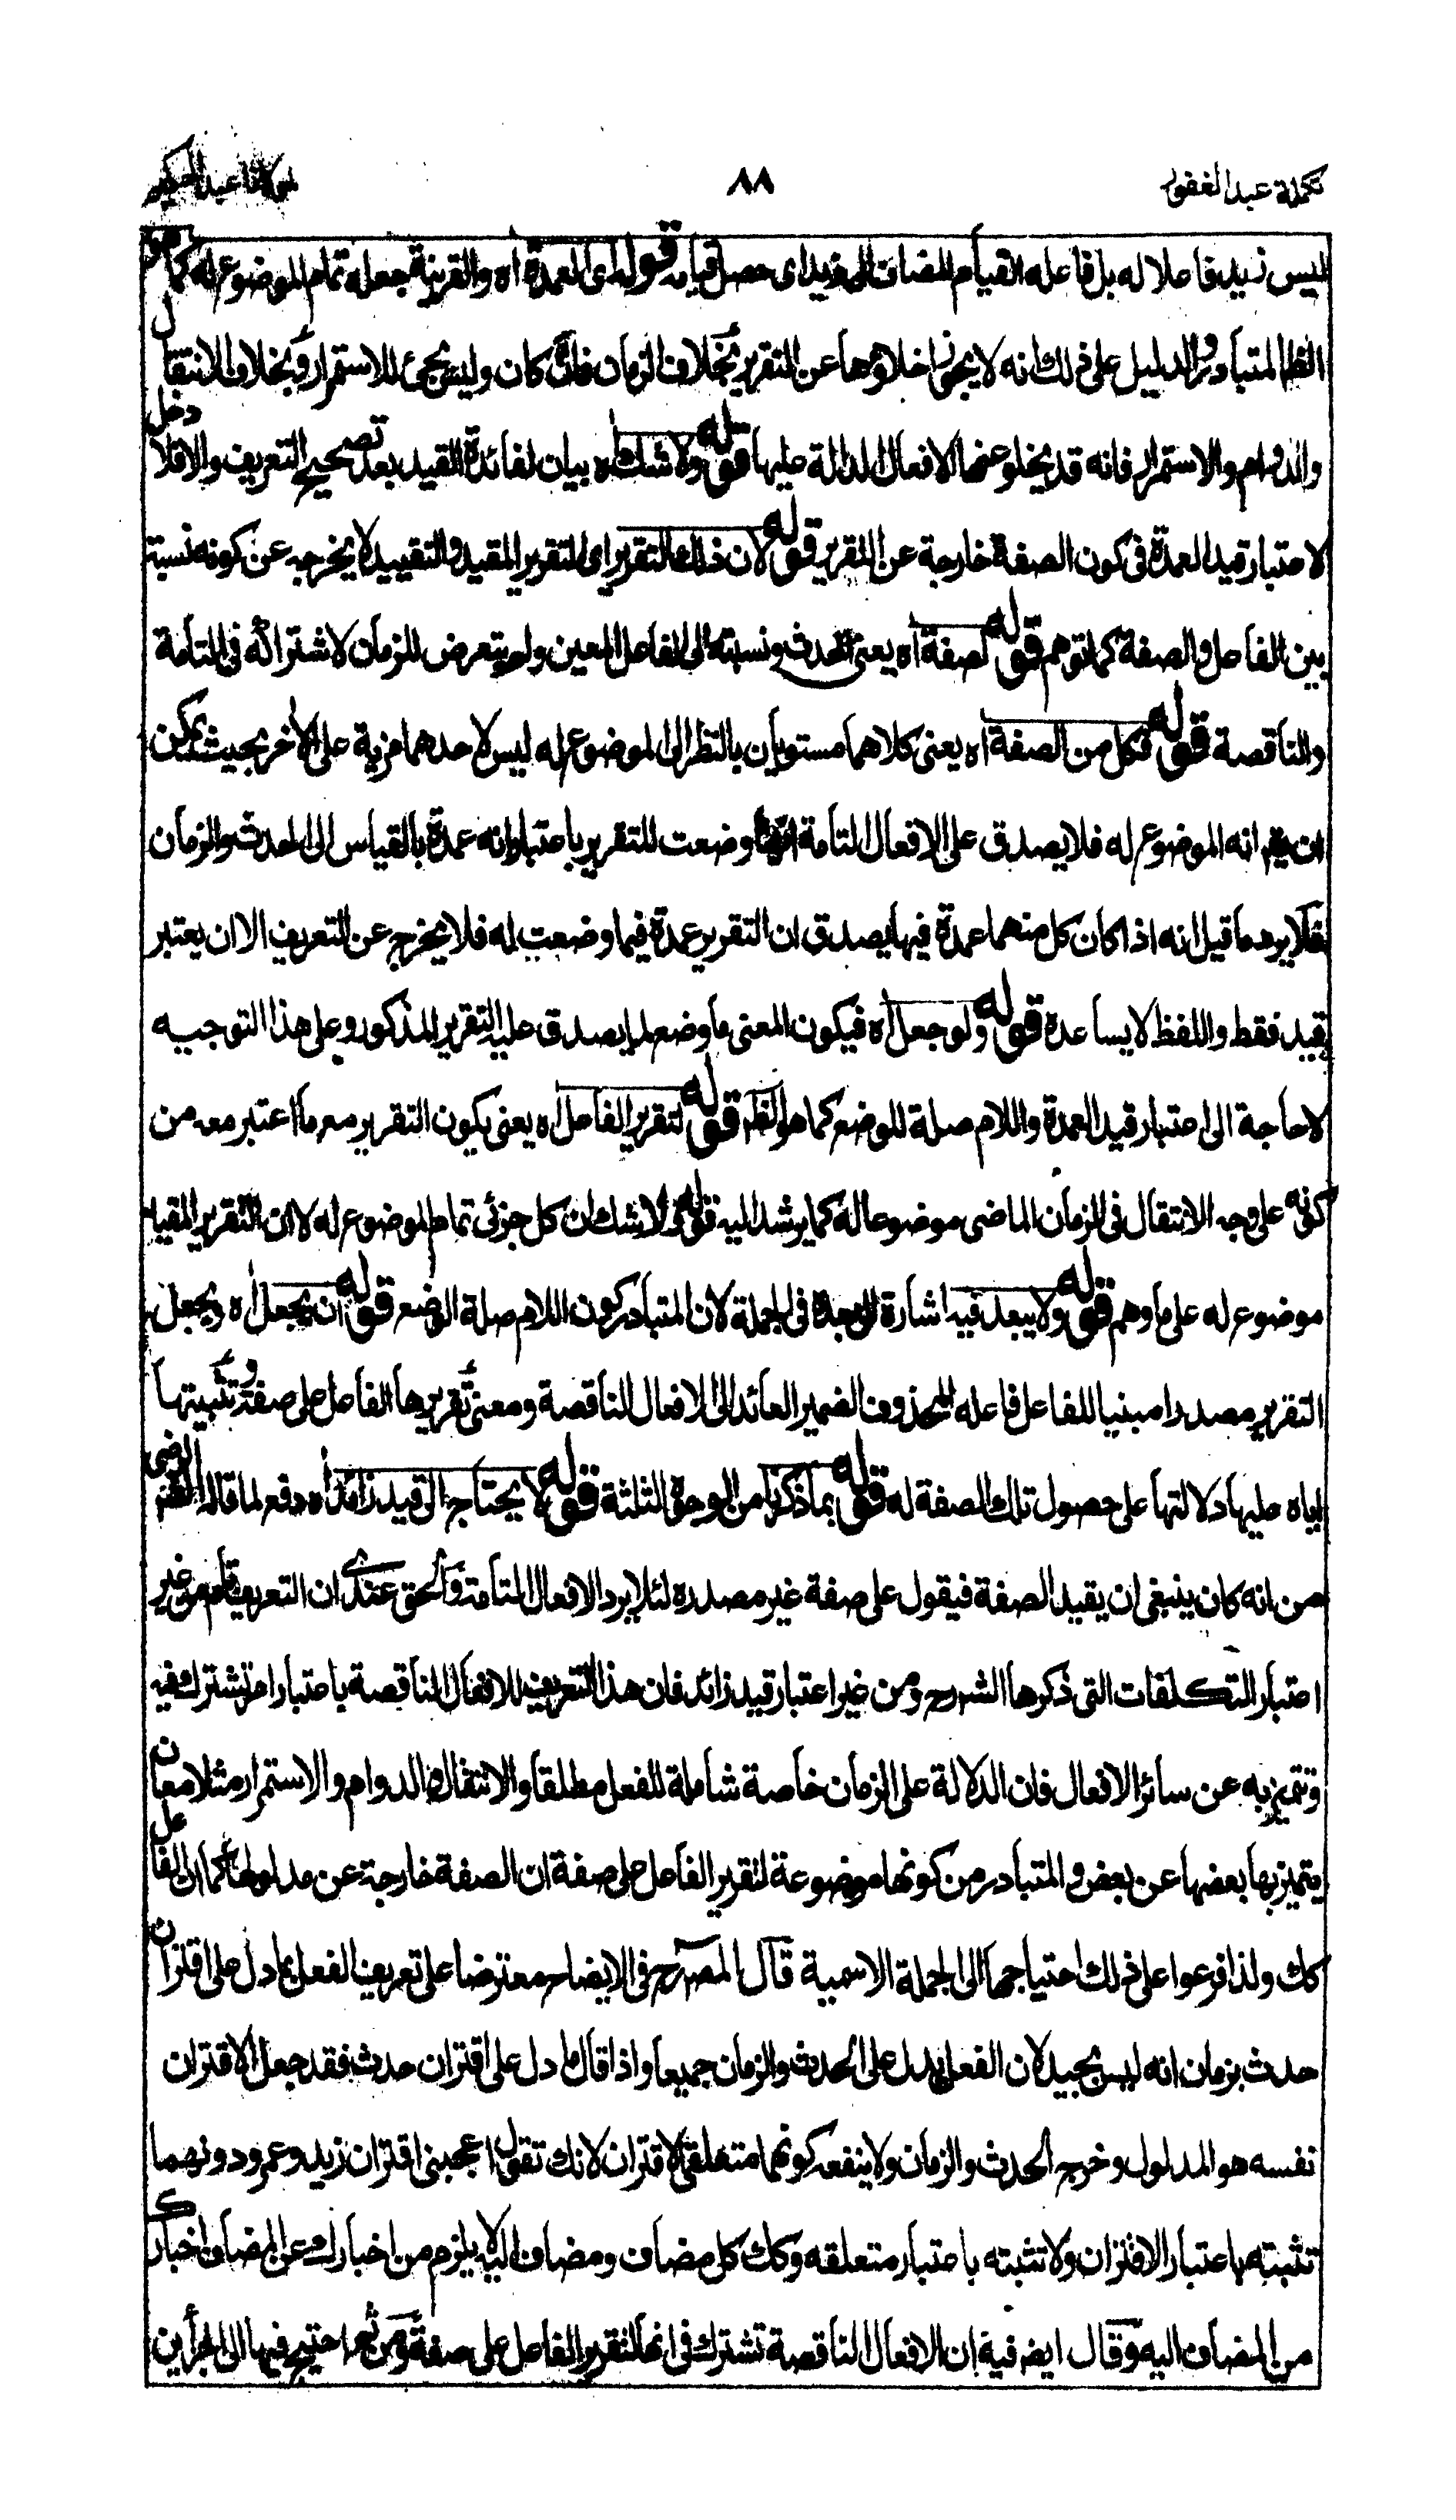 تكملة عبد الغفور
٨٨
مولانا عبد الحكيم
ليس زيد فاعلا له بل فاعله القيام المضاف الى زيد اى حصل قيامه قوله اى العمدة اه والقرينة جعله تمام الموضوع له كما هو
الظا المتبادر والدليل على ذلك انه لا يجوز اخلاؤها عن التقرير بخلاف الزمان فان كان وليس يجئ للاستمرار وبخلاف الانتقال
والدوام والاستمرار فانه قد يخلو عنها الافعال الدالة عليها قوله ولا شك اه بيان لفائدة القيد بعد تصحيح التعريف والا فلا دخل
لاعتبار قيد العمدة فى كون الصفة خارجة عن التقرير قوله لان ذلك التقرير اى التقرير المقيد والتقييد لا يخرجه عن كونه نسبة
بين الفاعل والصفة كما توهم قوله لصفة اه يعنى الحدث ونسبته الى الفاعل المعين ولم يتعرض للزمان لاشتراكه فى التامة
والناقصة قوله فكل من الصفة اه يعنى كلاهما مستويان بالنظر الى الموضوع له ليس لاحدهما مزية على الاخر بحيث يمكن
ان يقم انه الموضوع له فلا يصدق على الافعال التامة انها وضعت للتقرير باعتبار انه عمدة بالقياس الى الحدث والزمان
فلا يرد ما قيل انه اذا كان كل منهما عمدة فيها يصدق ان التقرير عمدة فيما وضعت له فلا يخرج عن التعريف الا ان يعتبر
قيد فقط واللفظ لا يساعده قوله ولو جعل اه فيكون المعنى ما وضع لما يصدق عليه التقرير المذكور وعلى هذا التوجيه
لا حاجة الى اعتبار قيد العمدة واللام صلة للوضع كما هو الظم قوله لتقرير الفاعل اه يعنى يكون التقرير مع ما اعتبر معه من
كونه على وجه الانتقال فى الزمان الماضى موضوعا له كما يرشد اليه قوله لا شك ان كل جزئى تمام الموضوع له لا ان التقرير المقيد
موضوع له على ما وهم قوله ولا يبعد فيه اشارة الى بعده فى الجملة لان المتبادر كون اللام صلة الوضع قوله ان يجعل اه ويجعل
التقرير مصدرا مبنيا للفاعل فاعله المحذوف الضمير العائد الى الافعال الناقصة ومعنى تقريرها الفاعل على صفة وتثبيتها
اياه عليها دلالتها على حصول تلك الصفة له قوله بما ذكرنا من الوجوه الثلثة قوله لا يحتاج الى قيد زائد اه دفع لما قاله الشيخ الرضى
من انه كان ينبغى ان يقيد الصفة فيقول على صفة غير مصدره لئلا يرد الافعال التامة والحق عندى ان التعريف تام من غير
اعتبار التكلفات التى ذكرها الشرح ومن غير اعتبار قيد زائد فان هذا التعريف للافعال الناقصة باعتبار امر تشترك فيه
وتتميز به عن سائر الافعال فان الدلالة على الزمان خاصة شاملة للفعل مطلقا والانتقال والدوام والاستمرار مثلا معان
يتميز بها بعضها عن بعض والمتبادر من كونها موضوعة لتقرير الفاعل على صفة ان الصفة خارجة عن مدلولها كما ان الفاعل
كك ولذا فرعوا على ذلك احتياجها الى الجملة الاسمية قال المصرح فى الايضاح معترضا على تعريف الفعل بما دل على اقتران
حدث بزمان انه ليس بجيد لان الفعل يدل على الحدث والزمان جميعا واذا قال ما دل على اقتران حدث فقد جعل الاقتران
نفسه هو المدلول وخرج الحدث والزمان ولا ينفعه كونهما متعلقى الاقتران لانك تقول اعجبنى اقتران زيد وعمرو دونهما
تثبته باعتبار الاقتران ولا تثبته باعتبار متعلقه وكك كل مضاف ومضاف اليه لا يلزم من اخبارك عن المضاف اخبارك
من المضاف اليه وقال ايضه فيه ان الافعال الناقصة تشترك فى انها لتقرير الفاعل على صفة ومن ثم احتيج فيها الى الجزأين